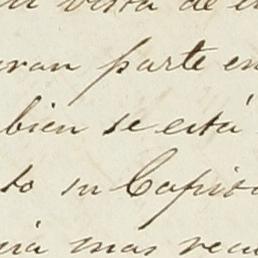 vista de
gran parte en
bien se está
to su Capita
ria mas recu